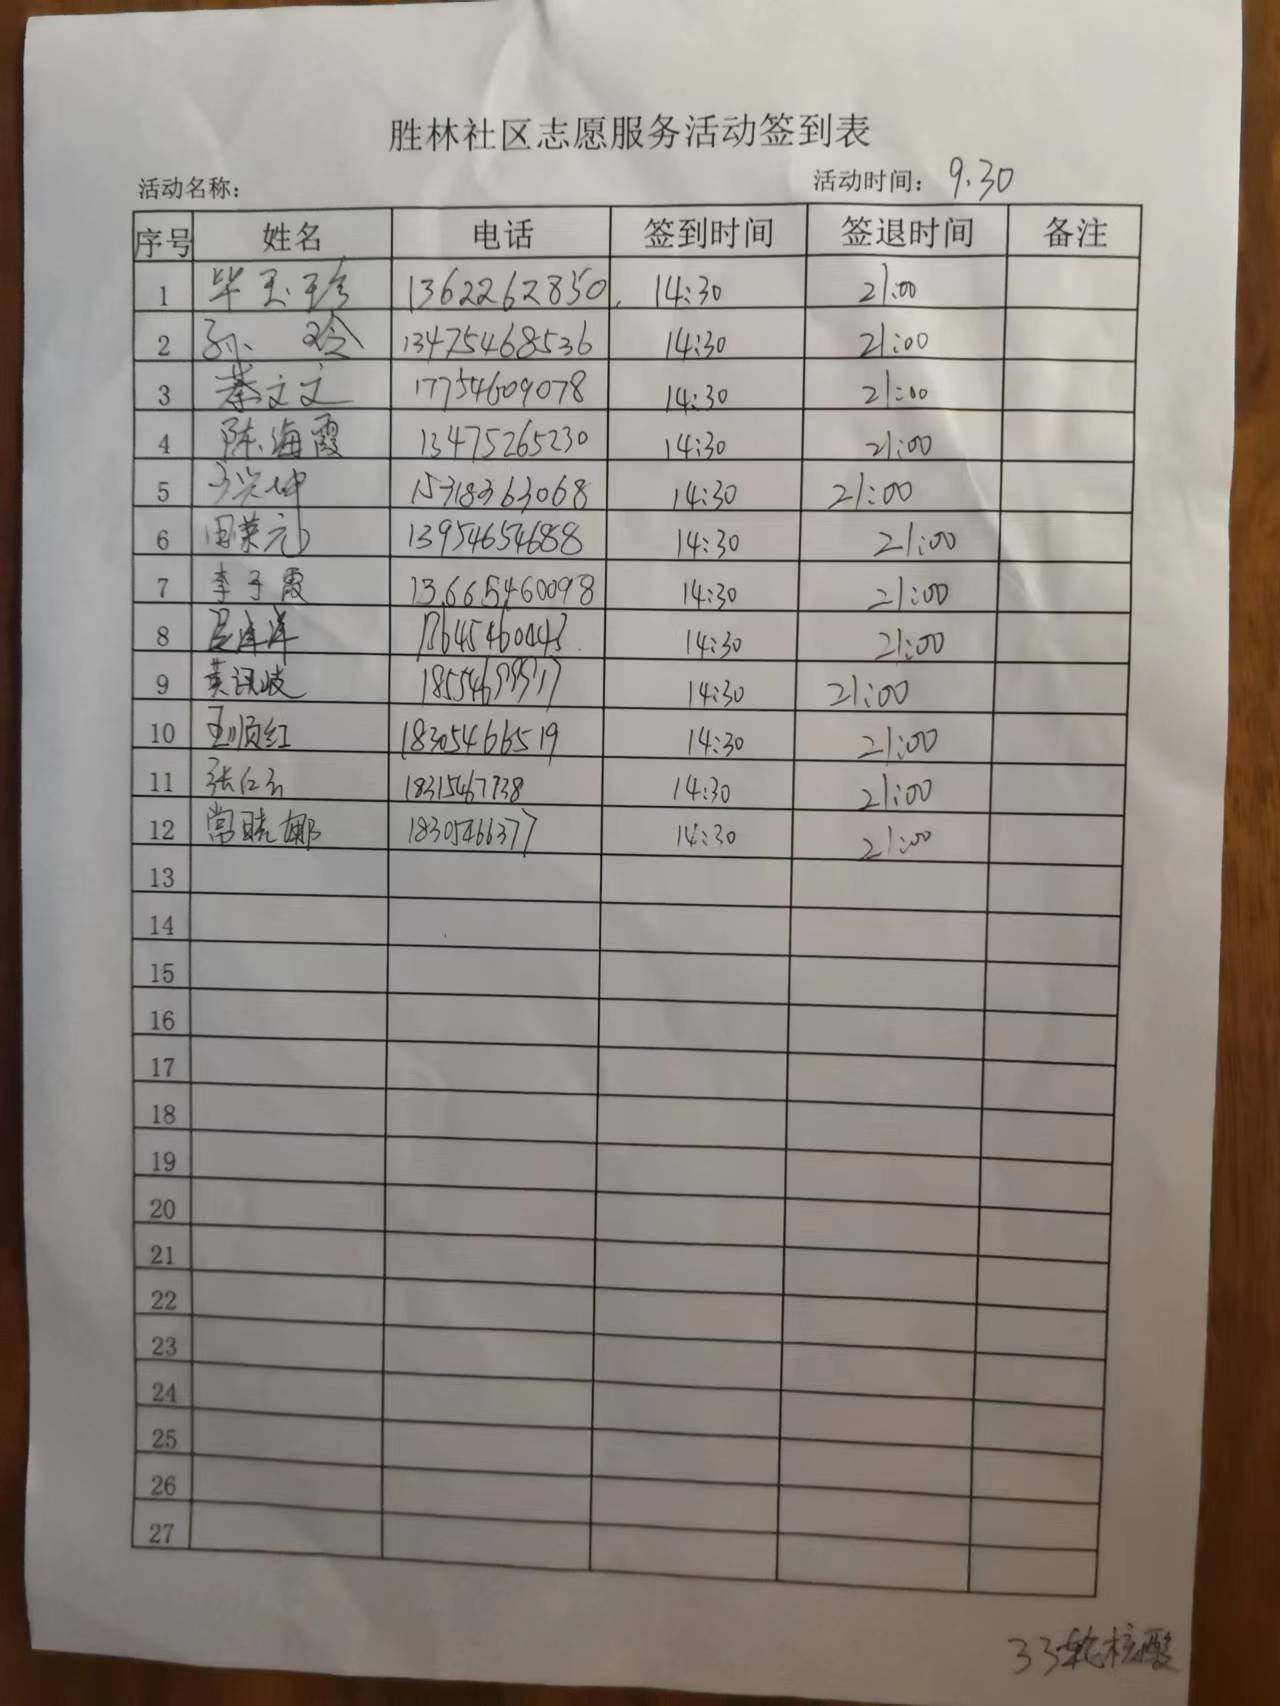 胜林社区志愿服务活动签到表
活动名称： 活动时间： 9.30
序号 姓名 电话 签到时间 签退时间 备注
1 毕玉珍 1362262850 14:30 21:00
2 孙玲 13475468536 14:30 21:00
3 蔡文文 17754609078 14:30 21:00
4 陈海霞 13475265230 14:30 21:00
5 15318363068 14:30 21:00
6 周荣元 13954654688 14:30 21:00
7 李子霞 13665460098 14:30 21:00
8 14:30 21:00
9 14:30 21:00
10 王顺红 18305466519 14:30 21:00
11 14:30 21:00
12 常晓娜 18305466377 14:30 21:00
13
14
15
16
17
18
19
20
21
22
23
24
25
26
27
33轮核酸